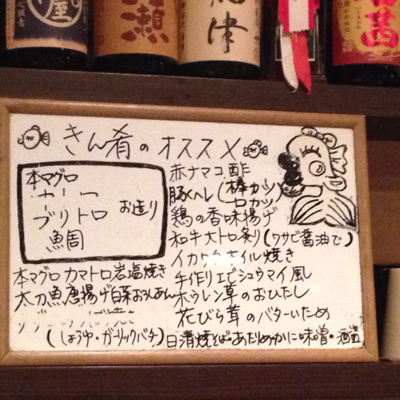 屋
瀬
津
きん肴のオススメ
本マグロ
ブリトロ
お造り
魚周
本マグロカマトロ岩塩焼き
太刀魚唐揚げ白菜おろしあん
(しょうゆ・ガーリックバター)
赤ナマコ酢
豚ヘレ(棒カツ
一口カツ)
鶏の香味揚げ
和牛大トロ炙り(ワサビ醤油で)
イカワタホイル焼き
手作りエビシュウマイ風
ホウレン草のおひたし
花びら茸のバターいため
日清焼そば・あたりめ・かに味噌・酒盗